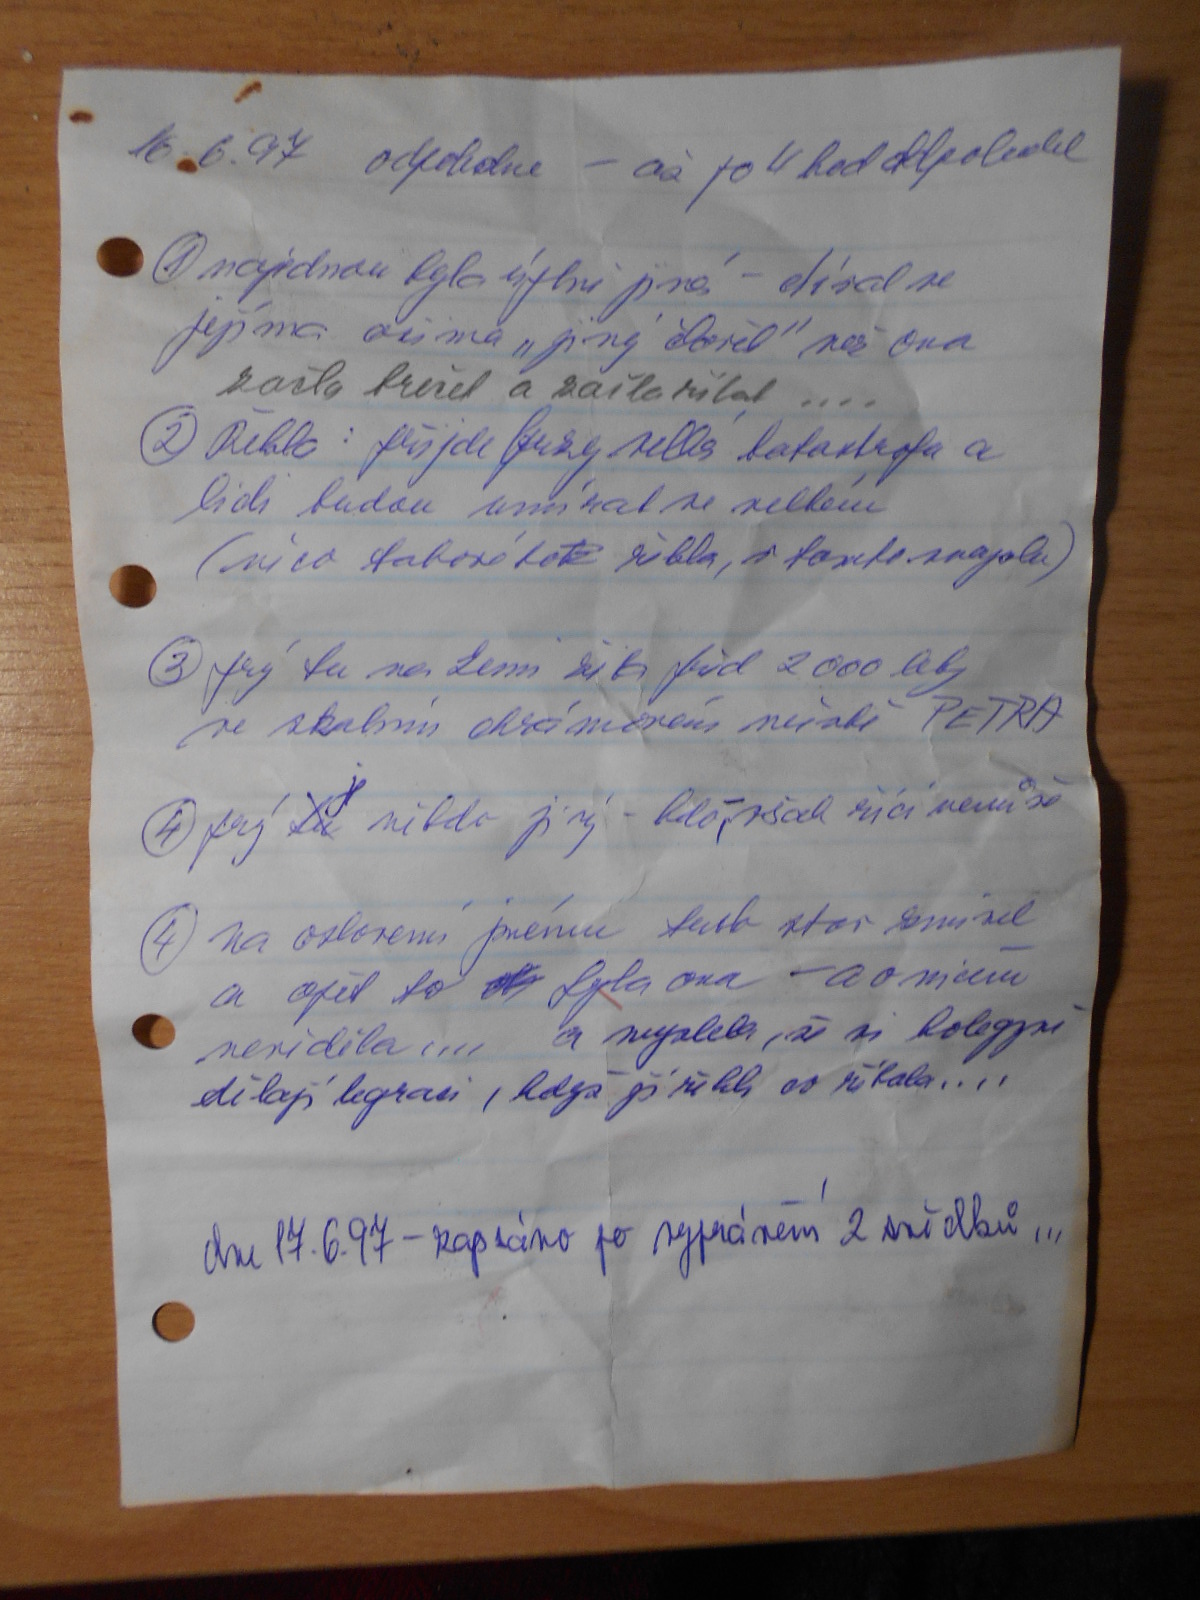 16.6.97 odpoledne – až po 4 hod odpoledne
① najednou byla úplně jiná – díval se
jejíma očima „jiný člověk" než ona
začla brečet a začla říkat ....
② Řekla: přijde brzy velká katastrofa a
lidi budou umírat ve velkém
(něco takového řekla, v tomto smyslu)
③ prý tu na Zemi žila před 2000 lety
ve skalním chrámovém městě PETRA
④ prý je někdo jiný – kdo, však říci nemůže
④ na oslovení jménem tento stav zmizel
a opět to byla ona – a o ničem
nevěděla .... a myslela, že si kolegyně
dělají legraci, když jí řekli co říkala....
dne 17.6.97 – zapsáno po vyprávění 2 svědků ...